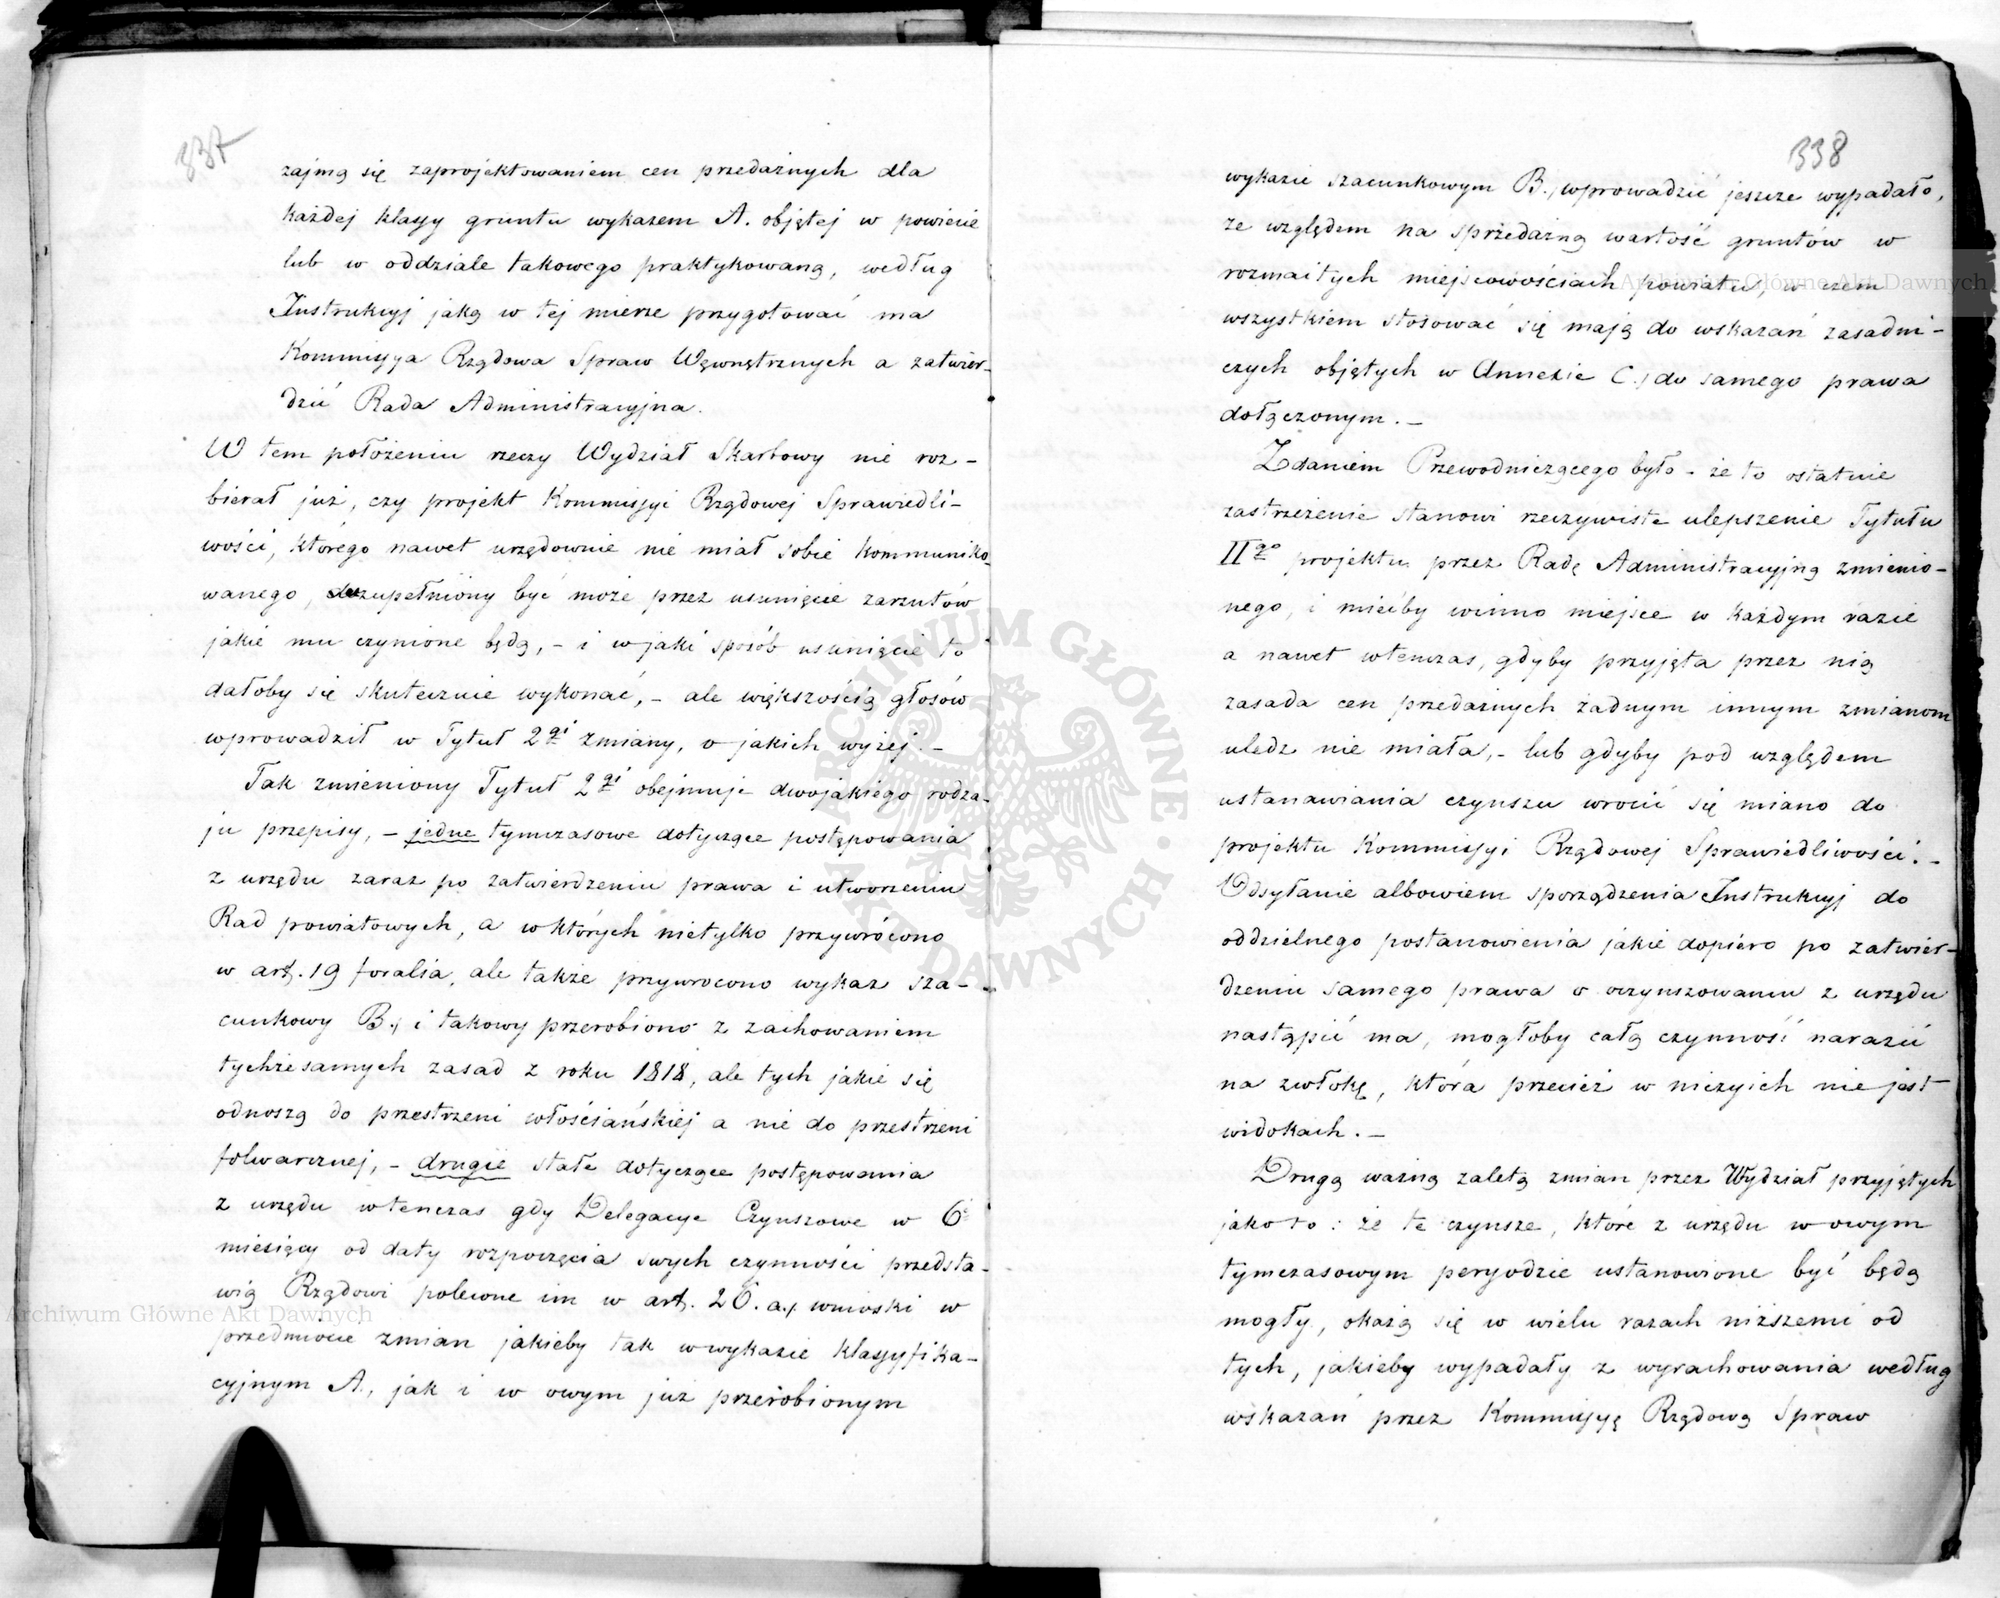 337
zajmą się zaprojektowaniem cen przedażnych dla
każdej klassy gruntu wykazem A. objętej w powiecie
lub w oddziale takowego praktykowaną, według
Instrukcyj jaką w tej mierze przygotować ma
Kommissya Rządowa Spraw Wewnętrznych a zatwier-
dzić Rada Administracyjna.
W tem położeniu rzeczy Wydział Skarbowy nie roz-
bierał już, czy projekt Kommissyi Rządowej Sprawiedli-
wości, którego nawet urzędownie nie miał sobie kommuniko-
wanego, uzupełniony być może przez usunięcie zarzutów
jakie mu czynione będą, - i w jaki sposób usunięcie to
dałoby się skutecznie wykonać, - ale większością głosów
wprowadził w Tytuł 2gi zmiany, o jakich wyżej. -
Tak zmieniony Tytuł 2gi obejmuje dwojakiego rodza-
ju przepisy, - jedne tymczasowe dotyczące postępowania
z urzędu zaraz po zatwierdzeniu prawa i utworzeniu
Rad powiatowych, a w których nietylko przywrócono
w art. 19 foralia, ale także przywrócono wykaz sza-
cunkowy B., i takowy przerobiono z zachowaniem
tychże samych zasad z roku 1818, ale tych jakie się
odnoszą do przestrzeni włościańskiej a nie do przestrzeni
folwarcznej, - drugie stałe dotyczące postępowania
z urzędu wtenczas gdy Delegacye Czynszowe w 6
miesięcy od daty rozpoczęcia swych czynności przedsta-
wią Rządowi polecone im w art. 26. a., wnioski w
przedmiocie zmian jakieby tak w wykazie klassyfika-
cyjnym A., jak i w owym już przerobionym
338
wykazie szacunkowym B., wprowadzić jeszcze wypadało,
ze względem na sprzedażną wartość gruntów w
rozmaitych miejscowościach powiatu, w czem
wszystkiem stosować się mają do wskazań zasadni-
czych objętych w Annexie C., do samego prawa
dołączonym. -
Zdaniem Przewodniczącego było - że to ostatnie
zastrzeżenie stanowi rzeczywiste ulepszenie Tytułu
IIgo projektu przez Radę Administracyjną zmienio-
nego, i miećby winno miejsce w każdym razie
a nawet wtenczas, gdyby przyjęta przez nią
zasada cen przedażnych żadnym innym zmianom
uledz nie miała, - lub gdyby pod względem
ustanawiania czynszu wrócić się miano do
projektu Kommissyi Rządowej Sprawiedliwości. -
Odsyłanie albowiem sporządzenia Instrukcyj do
oddzielnego postanowienia jakie dopiero po zatwier-
dzeniu samego prawa o oczynszowaniu z urzędu
nastąpić ma, mogłoby całą czynność narazić
na zwłokę, która przecież w niczyich nie jest
widokach. -
Drugą ważną zaletą zmian przez Wydział przyjętych
jako to: że te czynsze, które z urzędu w owym
tymczasowym peryodzie ustanowione być będą
mogły, okażą się w wielu razach niższemi od
tych, jakieby wypadały z wyrachowania według
wskazań przez Kommissyę Rządową Spraw
Archiwum Główne Akt Dawnych
Archiwum Główne Akt Dawnych
ARCHIWUM GŁÓWNE AKT DAWNYCH